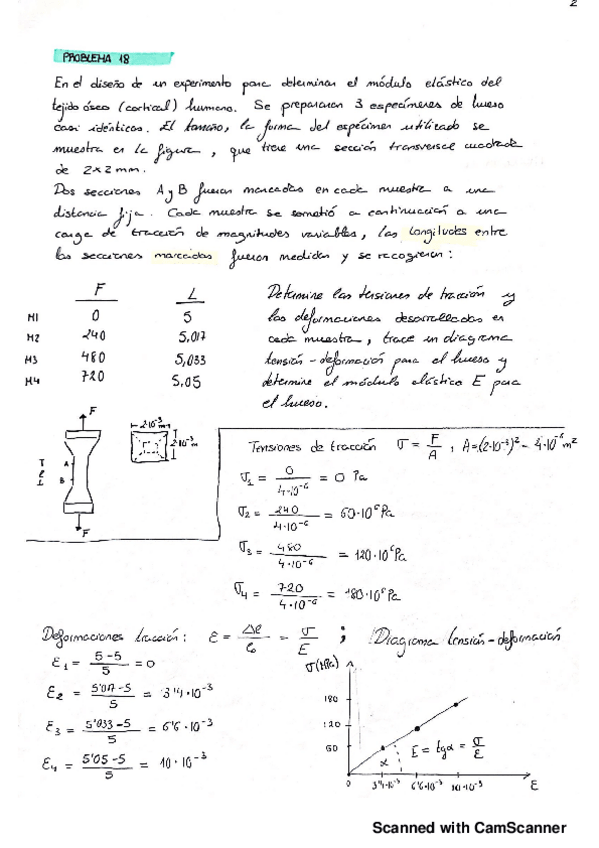 2
PROBLEMA 18
En el diseño de un experimento para determinar el módulo elástico del
tejido óseo (cortical) humano. Se prepararon 3 especímenes de hueso
casi idénticos. El tamaño, la forma del espécimen utilizado se
muestra en la figura, que tiene una sección transversal cuadrada
de 2x2 mm.
Dos secciones A y B fueron marcadas en cada muestra a una
distancia fija. Cada muestra se sometió a continuación a una
carga de tracción de magnitudes variables, las longitudes entre
las secciones marcadas fueron medidas y se recogieron:
F L
M1 0 5
M2 240 5,017
M3 480 5,033
M4 720 5,05
Determine las tensiones de tracción y
las deformaciones desarrolladas en
cada muestra, trace un diagrama
tensión-deformación para el hueso y
determine el módulo elástico E para
el hueso.
F
A
B
F
2·10⁻³ m
2·10⁻³ m
Tensiones de tracción σ = F/A , A=(2·10⁻³)² = 4·10⁻⁶ m²
σ₁ = 0/4·10⁻⁶ = 0 Pa
σ₂ = 240/4·10⁻⁶ = 60·10⁶ Pa
σ₃ = 480/4·10⁻⁶ = 120·10⁶ Pa
σ₄ = 720/4·10⁻⁶ = 180·10⁶ Pa
Deformaciones tracción: ε = Δl/l₀ = σ/E ; Diagrama tensión-deformación
ε₁ = 5-5/5 = 0
ε₂ = 5'017-5/5 = 3'4·10⁻³
ε₃ = 5'033-5/5 = 6'6·10⁻³
ε₄ = 5'05-5/5 = 10·10⁻³
σ(MPa)
180
120
60
0
α
E = tgα = σ/ε
3'4·10⁻³ 6'6·10⁻³ 10·10⁻³ ε
Scanned with CamScanner